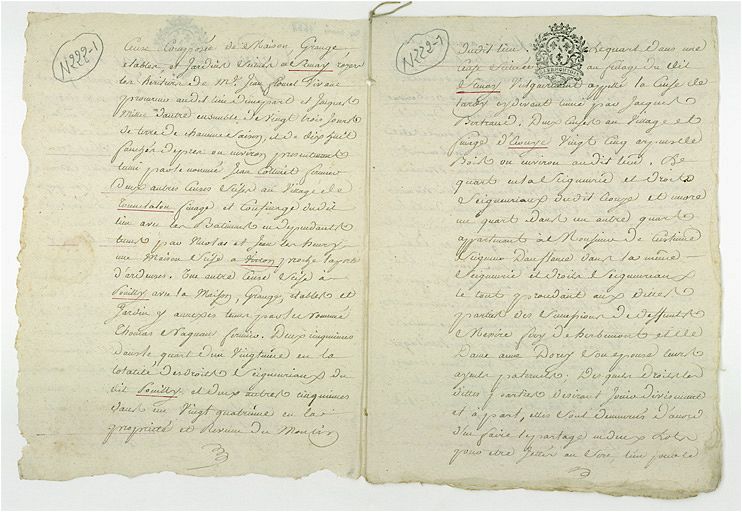 N222-1
Cense Composée de Maison, Grange
établer, et Jardin Scitués à
les héritiers de Mr. Jean
prenomme audit lieu d'une part et Jacques
Milet d'autre ensemble de Vingt trois Jours
de terre de chaume Saison, et de dix huit
fauchées de prez ou environ presentement
tenu par le nommé Jean Collinet fermier
Deux autres Censes Scise au Village de
Tonnelalon finage et Confinage dudit
lieu avec les Batiments en dependants
tenus par Nicolas et Jean les henry
une Maison Scise a Virton proche la porte
d'ardennes. Une autre Cense Scise à
Pouilly avec la Maison, Grange, etables et
Jardin y annexés tenus par le nommé
Thomas Vagnair fermier. Deux cinquiemes
dans le quart d'un Vingtieme en la
totalité des droits Seigneuriaux du
dit Pouilly, et deux autres cinquiemes
dans un Vingt quatrieme en la
propriété et Revenu du Moulin
N222-1
dudit lieu. quart dans une
Cense Scituée au finage du dit
Vulgairement appellé la Cense de
cy devant tenu par Jacques
Bertrand. Deux Censes au Village et
finage d' Vingt Cinq arpens de
Bois ou environ audit lieu. Le
quart en la Seigneurie et droits
Seigneuriaux dudit et encore
un quart dans un autre quart
appartenant à Monsieur de
Seigneur dans la même
Seigneurie et droits Seigneuriaux
le tout procedant aux dittes
parties des Successions de deffunts
Messire de herbemont et de
Dame anne Dorey Son epouse leurs
ayeuls paternels. Desquels Droits les
dittes parties desirant Jouir divisement
et à part, elles Sont demeurés d'accord
d'en faire le partage en deux Lots
pour etre Jettés au Sort, l'un pour le